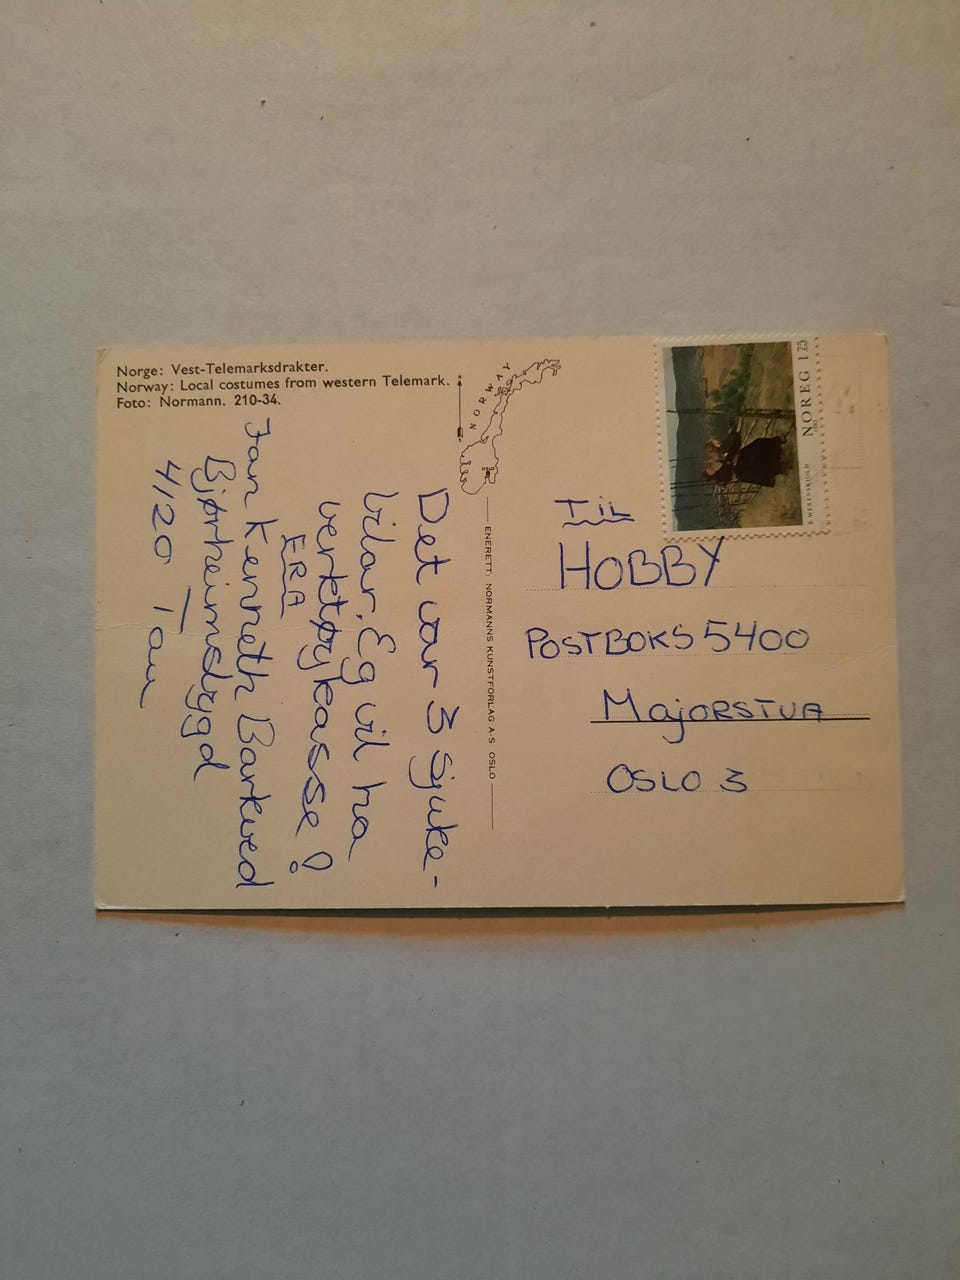 Norge: Vest-Telemarksdrakter.
Norway: Local costumes from western Telemark.
Foto: Normann. 210-34.
NORWAY
OSLO
ENERETT: NORMANNS KUNSTFORLAG A·S OSLO
Det var 3 sjuke-
bilar. Eg vil ha
verktøykasse!
FRA
Jan Kenneth Barkved
Bjørheimsbygd
4120 Tau
NOREG 175
E WERENSKIOLD
TIL
HOBBY
POSTBOKS 5400
MajORSTUA
OSLO 3